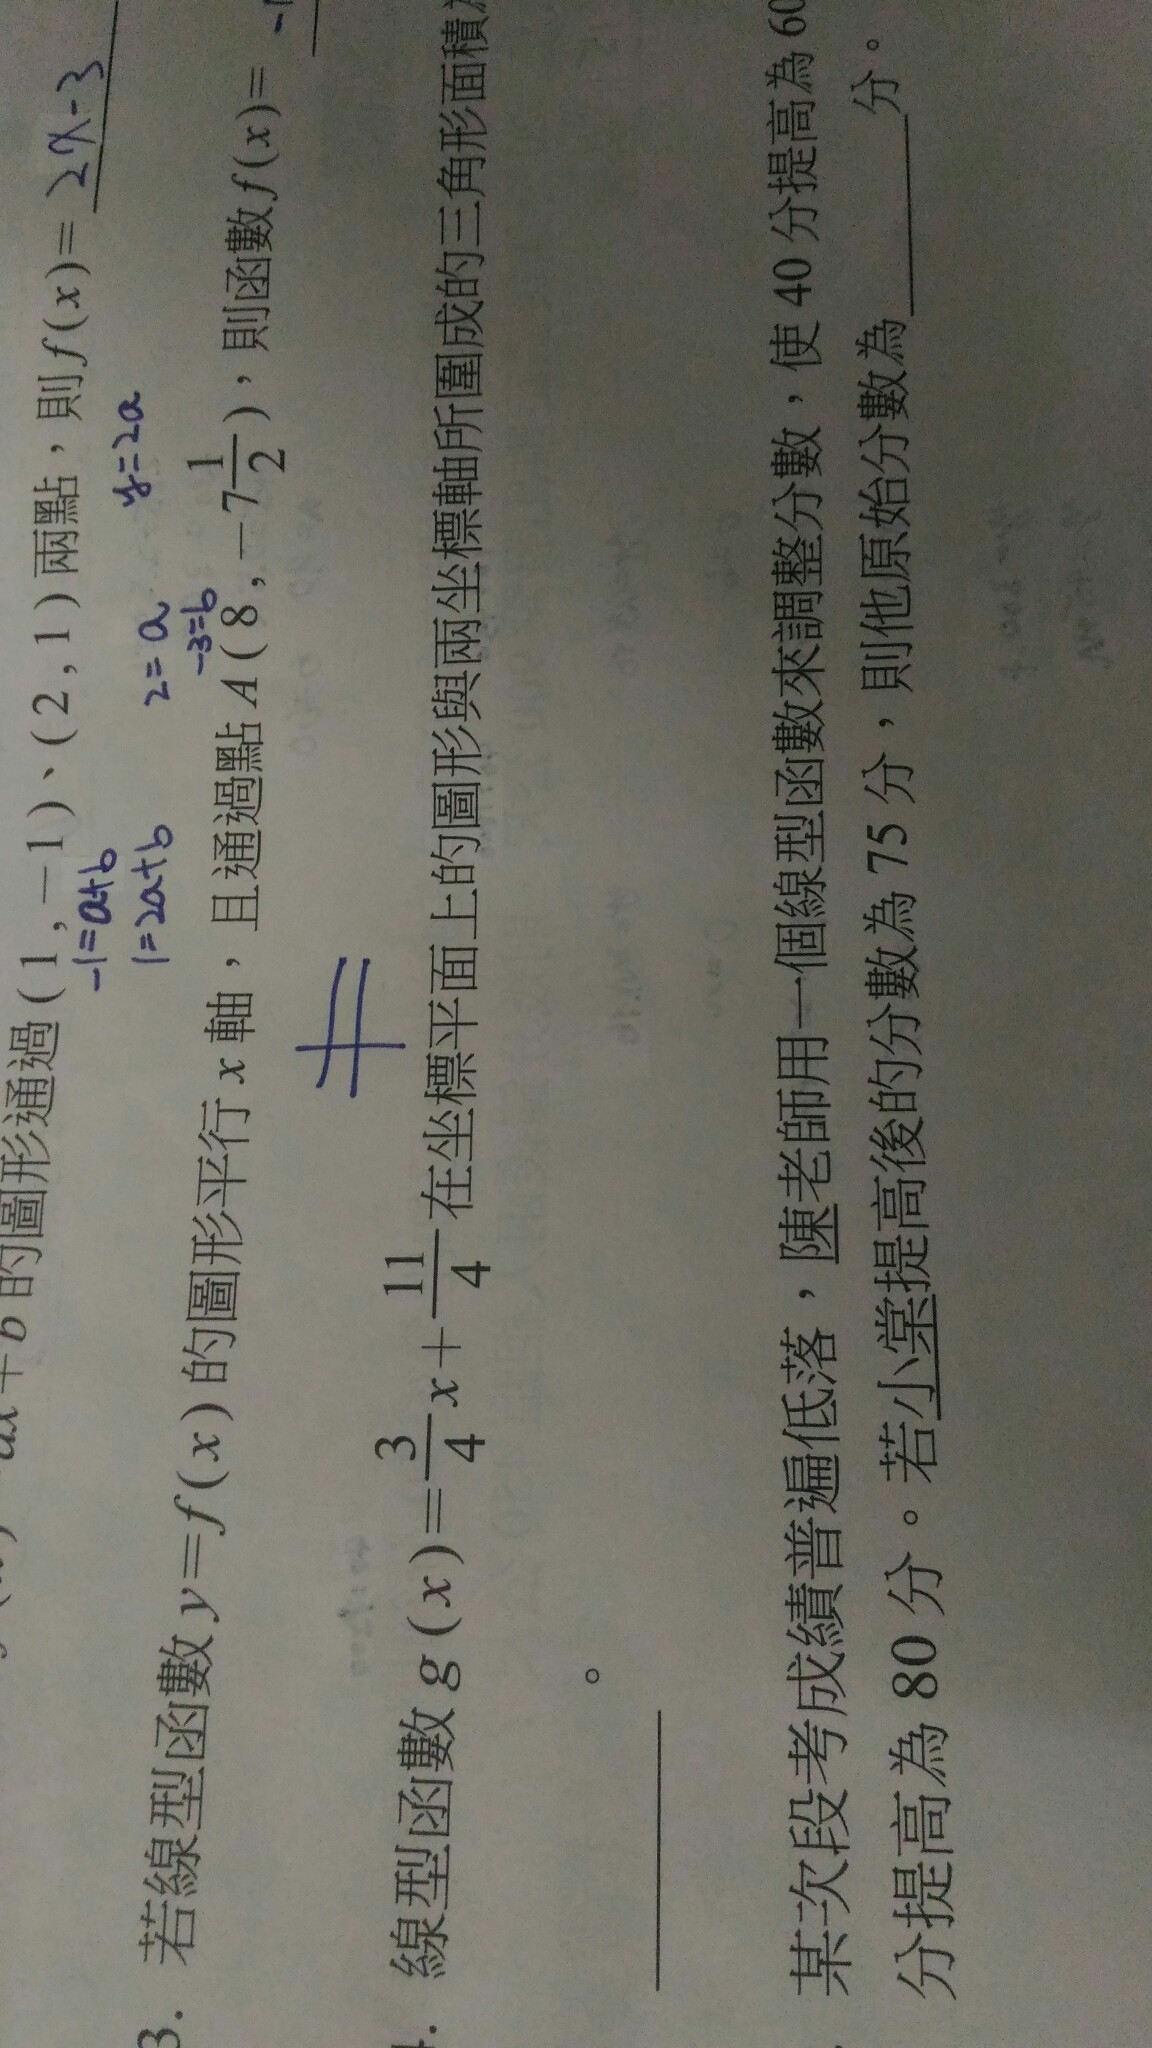 ax+b的圖形通過(1,-1)、(2,1)兩點,則f(x)=2x-3
-1=a+b
1=2a+b
2=a
-3=b
y=2a
3. 若線型函數y=f(x)的圖形平行x軸,且通過點A(8,-7 1/2),則函數f(x)=
4. 線型函數g(x)=3/4 x+11/4在坐標平面上的圖形與兩坐標軸所圍成的三角形面積
。
某次段考成績普遍低落,陳老師用一個線型函數來調整分數,使40分提高為60
分提高為80分。若小棠提高後的分數為75分,則他原始分數為 分。